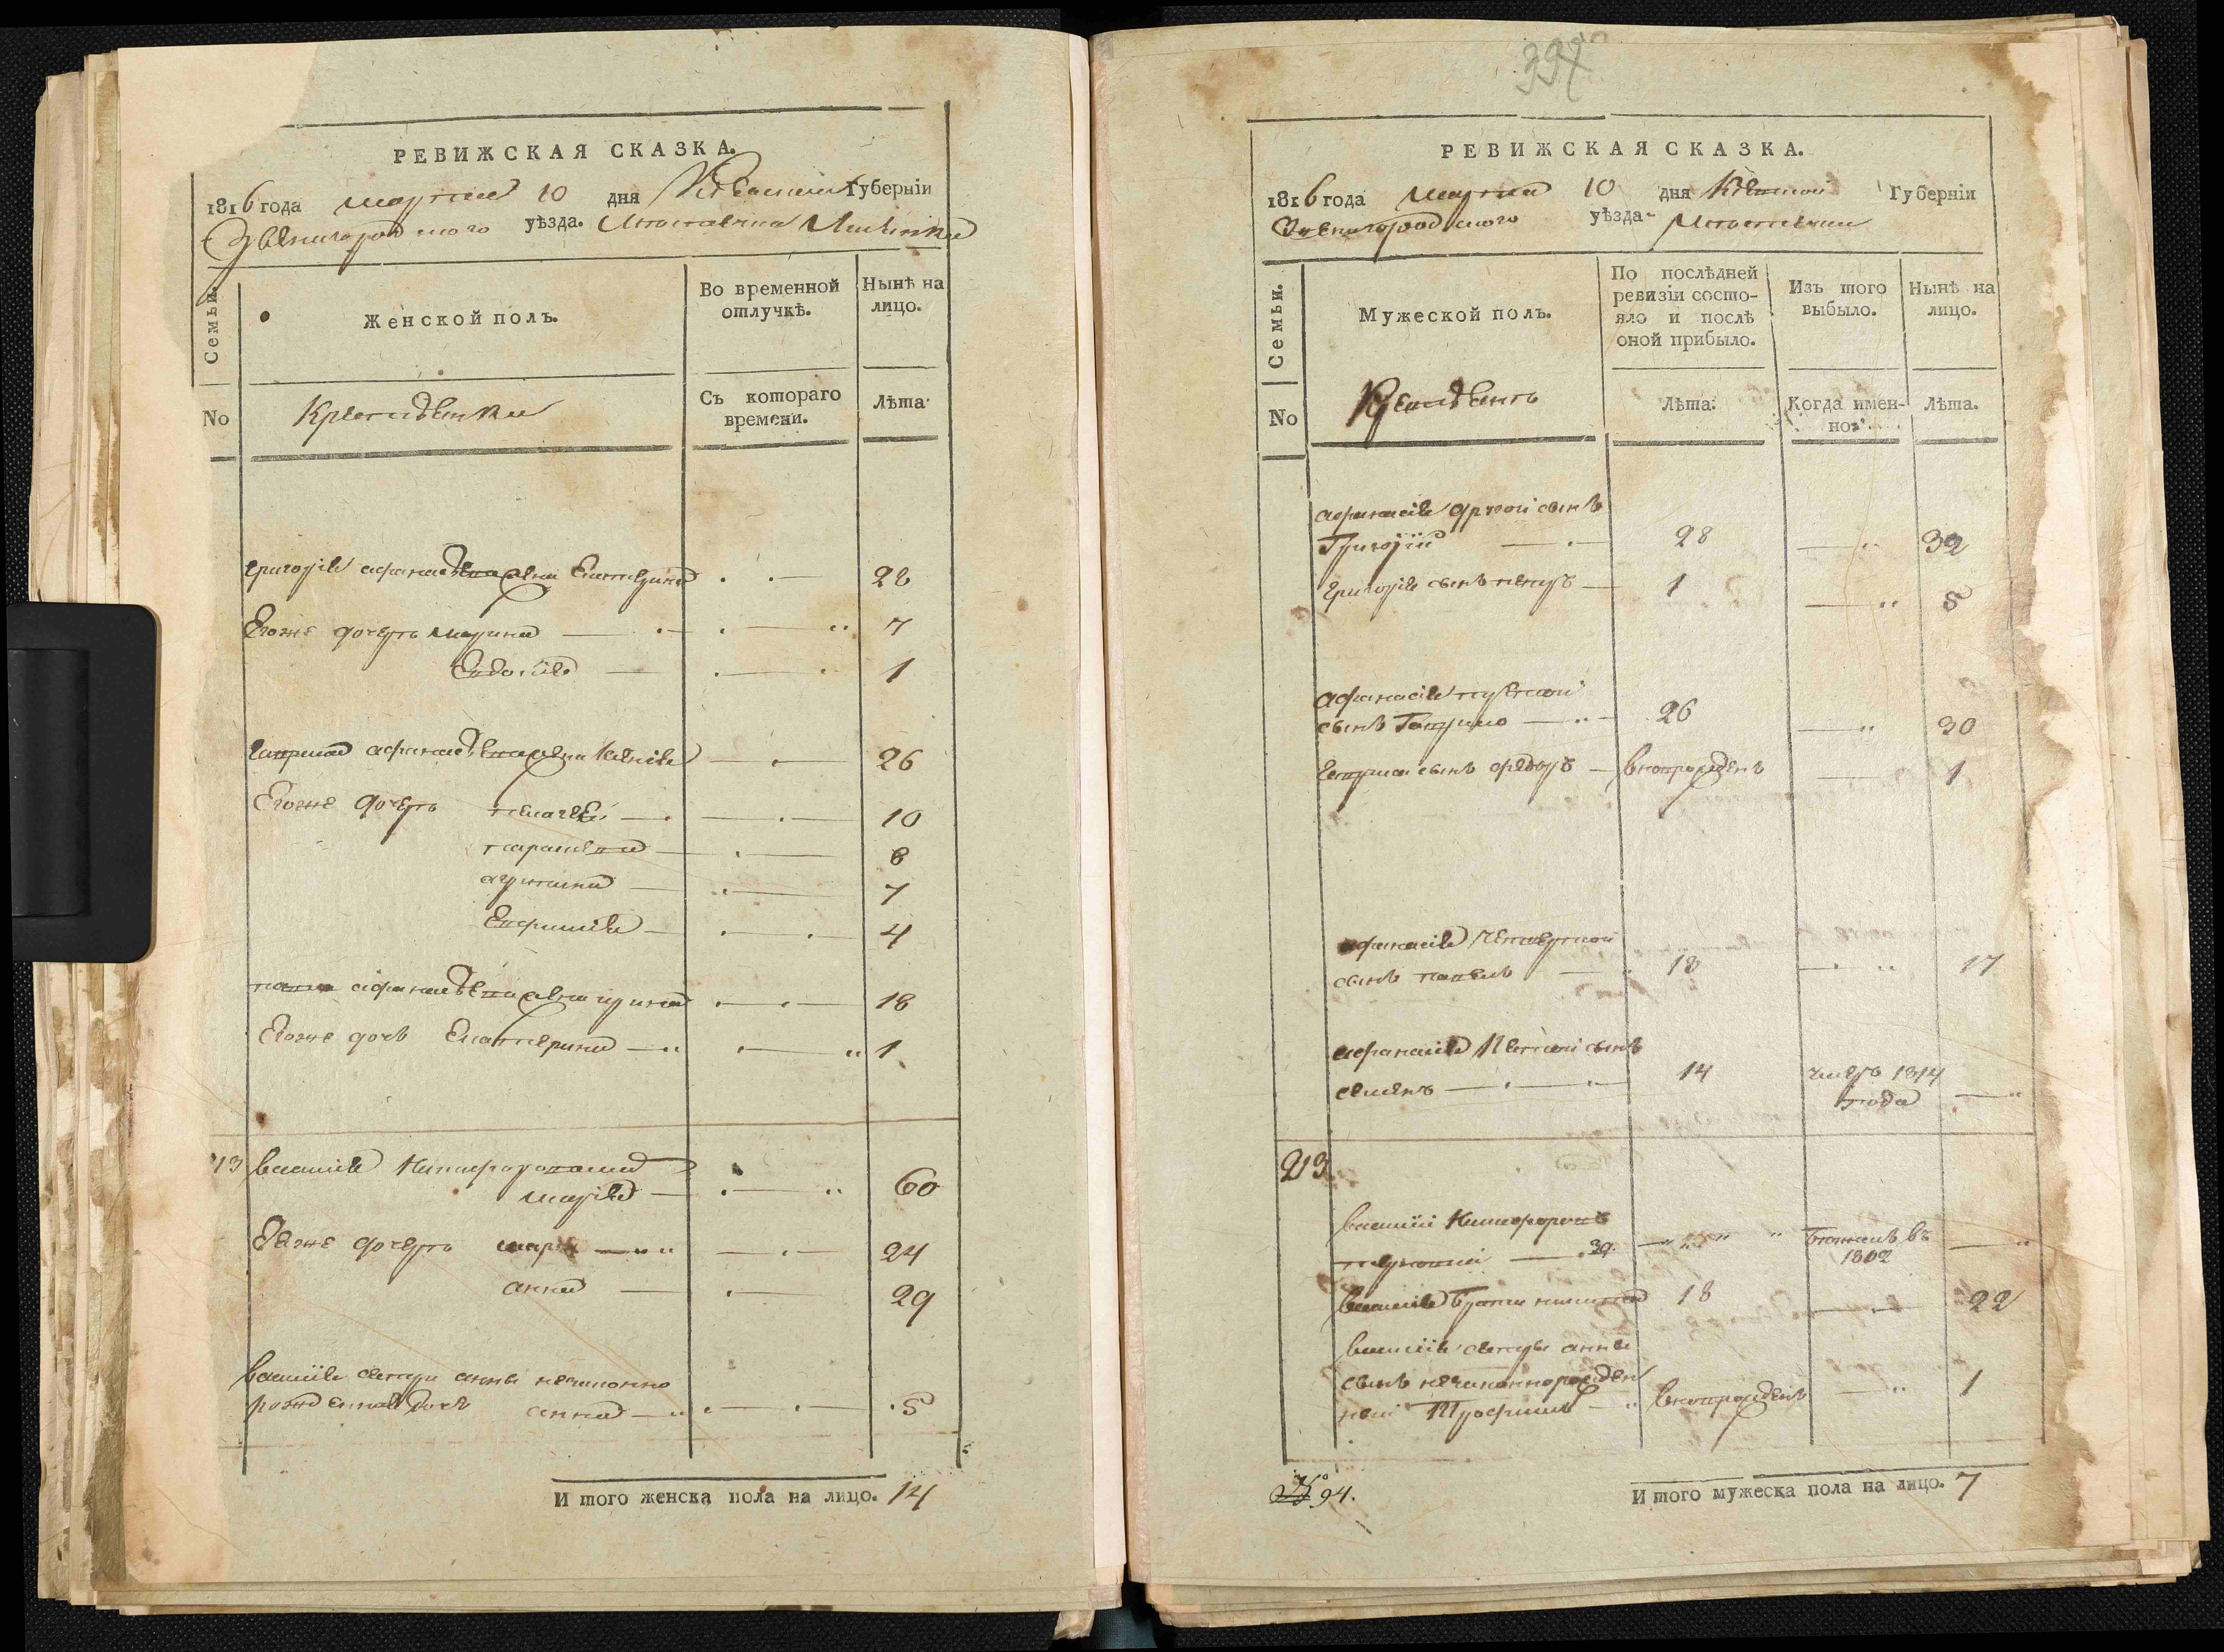 РЕВИЖСКАЯ СКАЗКА.
1816 года марта 10 дня Киевской Губерніи
Звенигородского уѣзда. Местечка
Семьи.
Женской полъ.
Во временной отлучкѣ.
Нынѣ на лицо.
No
Крестьянки
Съ котораго времени.
Лѣта
Григорія Афанасьева жена Екатерина 22
Егоже дочерь марина 7
Евдокія 1
Гаврила Афанасьева жена Ксенія 26
Егоже дочерь пелагея 10
параскева 8
агрипина 7
Евфимія 4
павла Афанасьева жена ирина 18
Егоже дочь Екатерина 1
13 василія Никифорова
марія 60
Еяже дочерь марфа 24
анна 29
василія сестры анны незаконно
рожденная дочь анна 5
И того женска пола на лицо. 14
397
РЕВИЖСКАЯ СКАЗКА.
1816 года марта 10 дня Киевской Губерніи
Звенигородского уѣзда Местечка
Семьи.
Мужеской полъ.
По послѣдней ревизіи состояло и послѣ оной прибыло.
Изъ того выбыло.
Нынѣ на лицо.
No
Крестьянъ
Лѣта.
Когда именно.
Лѣта.
Афанасія другой сынъ
Григорій 28 32
Григорія сынъ петръ 1 5
Афанасія третій
сынъ Гаврило 26 30
Гаврила сынъ федоръ новорожденъ 1
Афанасія четвертой
сынъ павелъ 13 17
Афанасія пятой сынъ
семенъ 14 умеръ 1814
года
213
василій Никифоровъ
39 бежалъ въ
1802
василія братъ никита 18 22
василія сестры анны
сынъ незаконнорожден
ной Трофимъ новорожденъ 1
94.
И того мужеска пола на лицо. 7